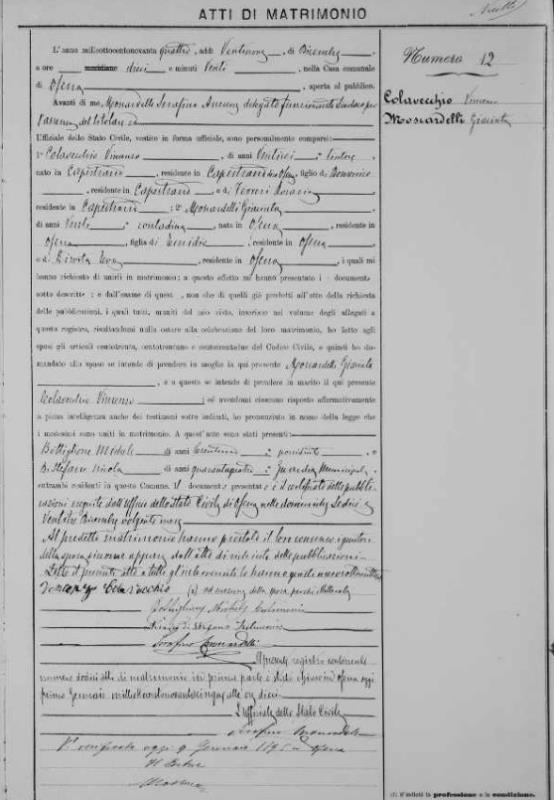 ATTI DI MATRIMONIO
Numero 12
Colavecchio Vincenzo
Moscardelli Giacinta
L'anno milleottocentonovanta quattro, addì Ventinove, di Dicembre,
a ore meridiane dieci e minuti Venti, nella Casa comunale
di Ofena, aperta al pubblico.
Avanti di me Moscardelli Serafino Assessore delegato funzionante Sindaco per
l'assenza del titolare
Uffiziale dello Stato Civile, vestito in forma ufficiale, sono personalmente comparsi:
1° Colavecchio Vincenzo, di anni Ventisei,
nato in Capestrano, residente in Capestrano, figlio di
, residente in Capestrano e di
residente in Capestrano; 2° Moscardelli Giacinta,
di anni Venti, contadina, nata in Ofena, residente in
Ofena, figlia di Emidio, residente in Ofena
e di, residente in Ofena, i quali mi
hanno richiesto di unirli in matrimonio; a questo effetto mi hanno presentato i documenti
sotto descritti; e dall'esame di questi, non che di quelli già prodotti all'atto della richiesta
delle pubblicazioni, i quali tutti, muniti del mio visto, inserisco nel volume degli allegati a
questo registro, risultandomi nulla ostare alla celebrazione del loro matrimonio, ho letto agli
sposi gli articoli centotrenta, centotrentuno e centotrentadue del Codice Civile, e quindi ho do-
mandato allo sposo se intende di prendere in moglie la qui presente Moscardelli Giacinta
, e a questa se intende di prendere in marito il qui presente
Colavecchio Vincenzo ed avendomi ciascuno risposto affermativamente
a piena intelligenza anche dei testimoni sotto indicati, ho pronunziato in nome della legge che
i medesimi sono uniti in matrimonio. A quest'atto sono stati presenti:
Bottiglione Michele di anni, possidente, e
Di Stefano Nicola di anni quarantaquattro, Guardia Municipale,
entrambi residenti in questo Comune. Il documento presentato è il certificato delle pubbli-
cazioni eseguite dall'Ufficio dello Stato Civile di Ofena nelle domeniche Sedici e
Ventitre Dicembre volgente mese
Al predetto matrimonio hanno prestato il loro consenso i genitori
della sposa siccome appare dall'atto di richiesta delle pubblicazioni
Letto il presente atto a tutti gl'intervenuti lo hanno
Colavecchio
Bottiglione Michele testimonio
Nicola Di Stefano Testimonio
Serafino Moscardelli
Il presente registro contenente
numero dodici atti di matrimonio in prima parte è stato chiuso in Ofena oggi
primo Gennaio milleottocentonovantacinque alle ore dieci
L'uffiziale dello Stato Civile
Serafino Moscardelli
verificato oggi 9 Gennaio 1895 in Ofena
Il Pretore
(1) S'indichi la professione o la condizione.